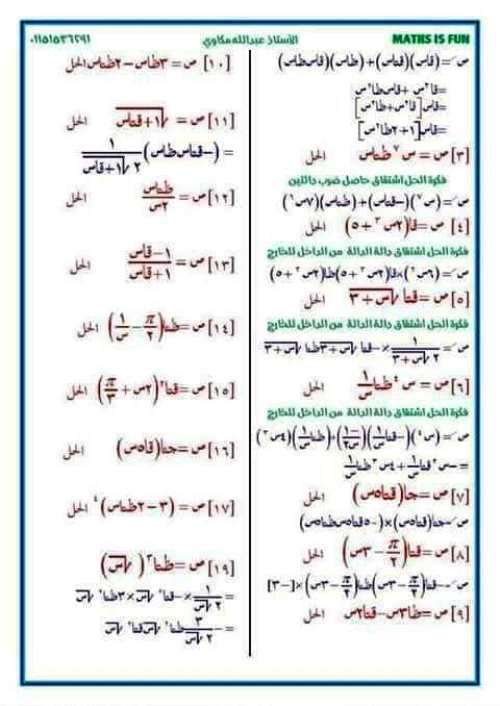 MATHS IS FUN
الأستاذ عبدالله مكاوي
٠١١٥١٥٣٦٢٩١
صَ = (قاس)(قتاس) + (ظاس)(قاس ظاس)
= قا٢س + قاس ظا٢س
= قاس[قا٢س + ظا٢س]
= قاس[١ + ٢ظا٢س]
[٣] ص = س٧ ظتاس الحل
فكرة الحل اشتقاق حاصل ضرب دالتين
صَ = (س٧)(-قتا٢س) + (ظتاس)(٧س٦)
[٤] ص = قا(٢س٣ + ٥) الحل
فكرة الحل اشتقاق دالة الدالة من الداخل للخارج
صَ = (٦س٢) × قا(٢س٣ + ٥) ظا(٢س٣ + ٥)
[٥] ص = قتا√(س + ٣) الحل
فكرة الحل اشتقاق دالة الدالة من الداخل للخارج
صَ = ١/(٢√(س + ٣)) × -قتا√(س + ٣) ظتا√(س + ٣)
[٦] ص = س٤ ظتا ١/س الحل
فكرة الحل اشتقاق دالة الدالة من الداخل للخارج
صَ = (س٤)(-قتا ١/س)(-١/س٢) + (ظتا ١/س)(٤س٣)
= -س٢ قتا ١/س + ٤س٣ ظتا ١/س
[٧] ص = جا(قتا٥س) الحل
صَ = جتا(قتا٥س) × (-٥قتا٥س ظتا٥س)
[٨] ص = قتا(π/٢ - ٣س) الحل
صَ = -قتا(π/٢ - ٣س) ظتا(π/٢ - ٣س) × [-٣]
[٩] ص = ظا٣س - قتا٢س الحل
[١٠] ص = ٣ظاس - ٢ظتاس الحل
[١١] ص = √(١ + قتاس) الحل
= (-قتاس ظاس) ١/(٢√(١ + قاس))
[١٢] ص = ظتاس/٢س الحل
[١٣] ص = (١ - قاس)/(١ + قاس) الحل
[١٤] ص = ظتا(π/٢ - ١/س) الحل
[١٥] ص = قتا٢(٢س + π/٣) الحل
[١٦] ص = جتا(قا٥س) الحل
[١٧] ص = (٣ - ٢ظتاس)٤ الحل
[١٩] ص = ظتا٣(√س)
= ١/(٢√س) × -قتا٢√س × ٣ظتا٢√س
= -٣/(٢√س) ظتا٢√س قتا٢√س